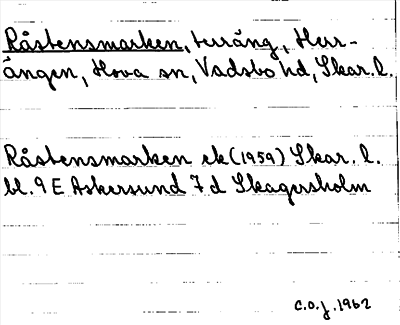 Råstensmarken, terräng, Herr-
ängen, Hova sn, Vadsbo hd, Skar. l.
Råstensmarken ek (1959) Skar. l.
bl. 9 E Askersund 7 d Skagersholm
C.O.J. 1962